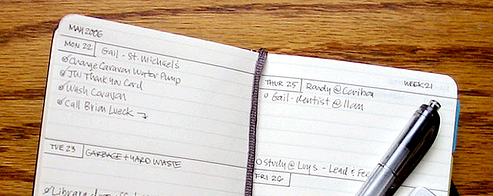 MAY 2006
MON 22 Gail - St. Michael's
Change Caravan Water Pump
JW Thank You Card
Wash Caravan
Call Brian Lueck
TUE 23 GARBAGE + HARD WASTE
Library
THUR 25 Randy @ Caribou WEEK 21
Gail - dentist @ 11am
study @ Luys - Lead &
FRI 26